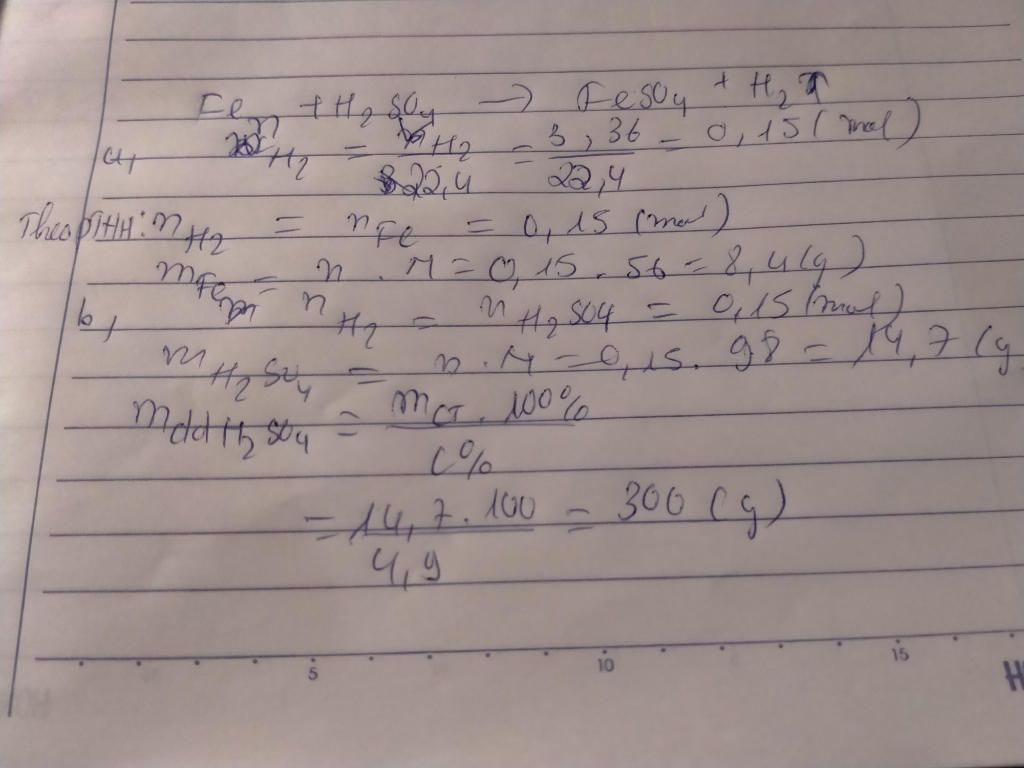 Fe + H2SO4 → FeSO4 + H2↑
a, nH2 = VH2/22,4 = 3,36/22,4 = 0,15 (mol)
Theo PTHH: nH2 = nFe = 0,15 (mol)
mFe = n . M = 0,15 . 56 = 8,4 (g)
b, nH2 = nH2SO4 = 0,15 (mol)
mH2SO4 = n . M = 0,15 . 98 = 14,7 (g
mddH2SO4 = mCT . 100% / C%
= 14,7 . 100 / 4,9 = 300 (g)
5 10 15
H